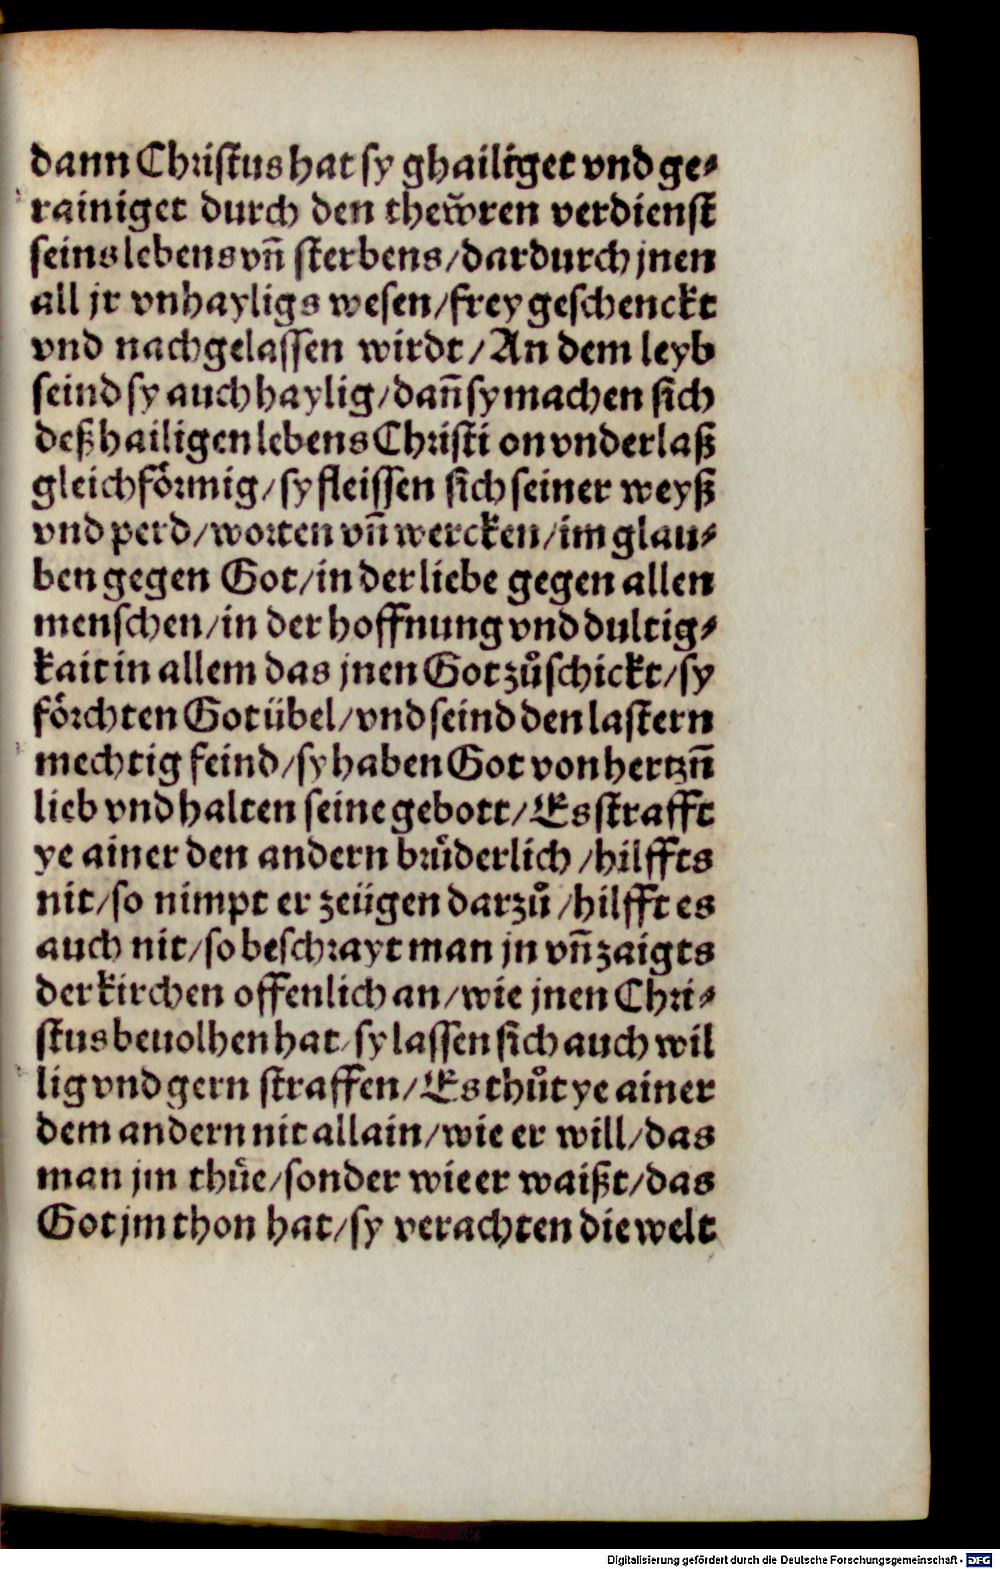 dann Christus hat sy ghailiget vnd ge⸗
rainiget durch den thew̆ren verdienst
seins lebens vñ sterbens/dardurch jnen
all jr vnhayligs wesen/frey geschenckt
vnd nachgelassen wirdt/An dem leyb
seind sy auch haylig/dañ sy machen sich
deß hailigen lebens Christi on vnderlaß
gleichförmig/sy fleissen sich seiner weyß
vnd perd/worten vñ wercken/im glau⸗
ben gegen Got/in der liebe gegen allen
menschen/in der hoffnung vnd dultig⸗
kait in allem das jnen Got zuͦschickt/sy
förchten Got übel/vnd seind den lastern
mechtig feind/sy haben Got von hertzñ
lieb vnd halten seine gebott/Es strafft
ye ainer den andern bruͤderlich/hilffts
nit/so nimpt er zeügen darzuͦ/hilfft es
auch nit/so beschrayt man jn vñ zaigts
der kirchen offenlich an/wie jnen Chri⸗
stus beuolhen hat/sy lassen sich auch wil
lig vnd gern straffen/Es thuͦt ye ainer
dem andern nit allain/wie er will/das
man jm thuͤe/sonder wie er waißt/das
Got jm thon hat/sy verachten die welt
Digitalisierung gefördert durch die Deutsche Forschungsgemeinschaft - DFG